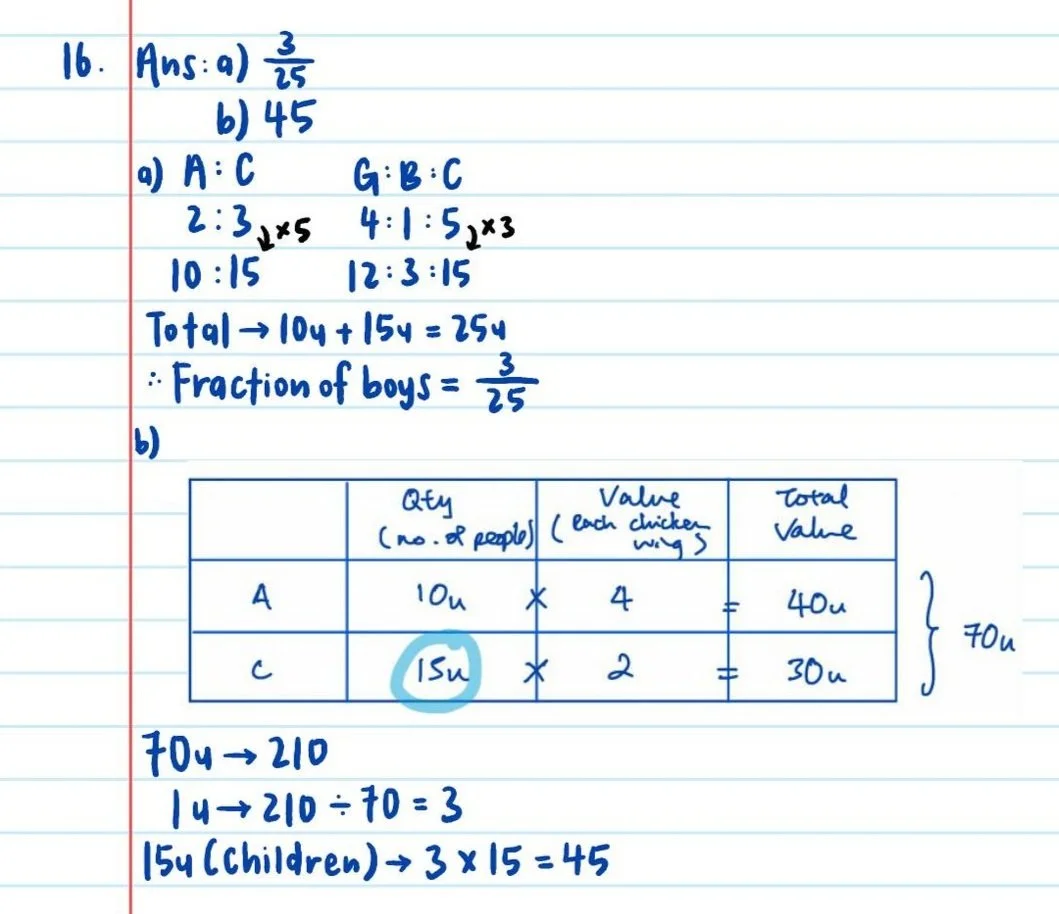 16. Ans: a) 3/25
b) 45
a) A : C G : B : C
2 : 3 ×5 4 : 1 : 5 ×3
10 : 15 12 : 3 : 15
Total → 10u + 15u = 25u
∴ Fraction of boys = 3/25
b)
Qty Value Total
(no. of people) (each chicken Value
wing)
A 10u × 4 = 40u
70u
C 15u × 2 = 30u
70u → 210
1u → 210 ÷ 70 = 3
15u (Children) → 3 × 15 = 45